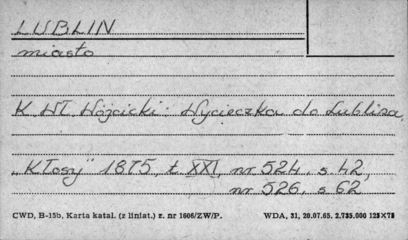 LUBLIN
miasto
K. Wł. Wójcicki: Wycieczka do Lublina,
„Kłosy" 1875, t. XXI, nr 524, s. 42,
nr 526, s 62
CWD, B-15b, Karta katal. (z liniat.) z. nr 1606/ZW/P. WDA, 31, 20.07.65. 2.735.000 125×75